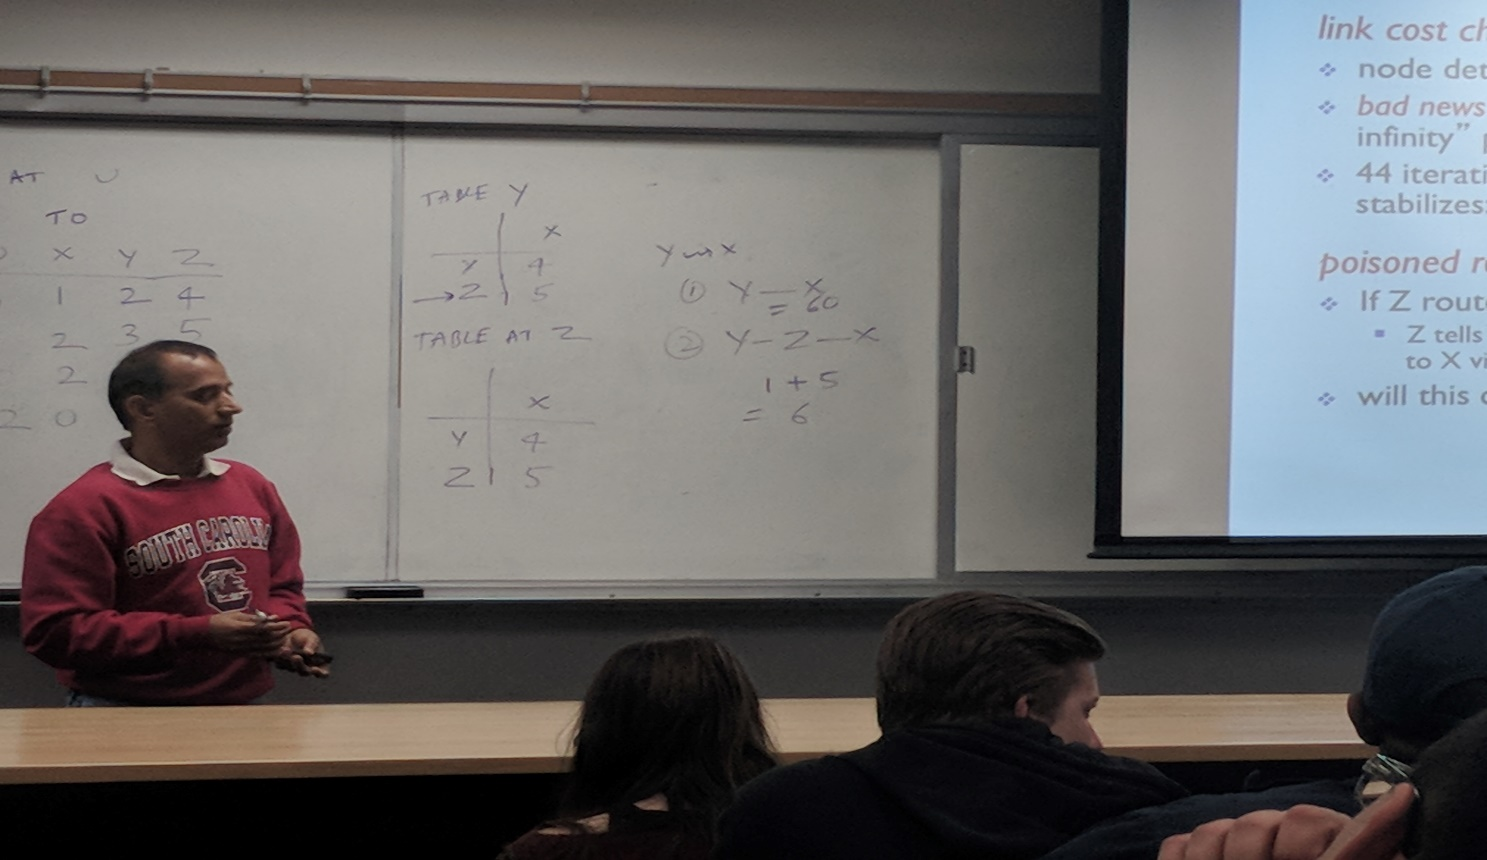 AT U
TO
X Y Z
1 2 4
2 3 5
2
2 0
TABLE Y
X
Y 4
→ Z 5
TABLE AT Z
X
Y 4
Z 5
Y X
① Y — X
= 60
② Y — Z — X
1 + 5
= 6
SOUTH CAROLINA
C
link cost
node
bad news
infinity”
44
stabilizes:
poisoned
If Z
Z tells
to X
will this